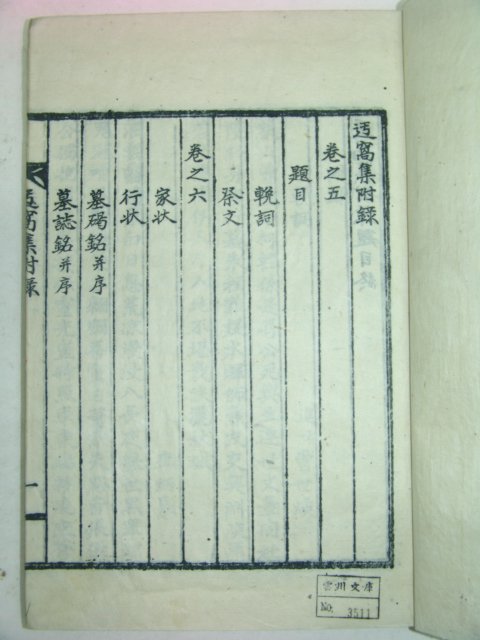 窩集附錄
卷之五
題目
輓詞
祭文
卷之六
家狀
行狀
墓碣銘并序
墓誌銘并序
窩集附錄
一
雲州文庫
NO. 3511